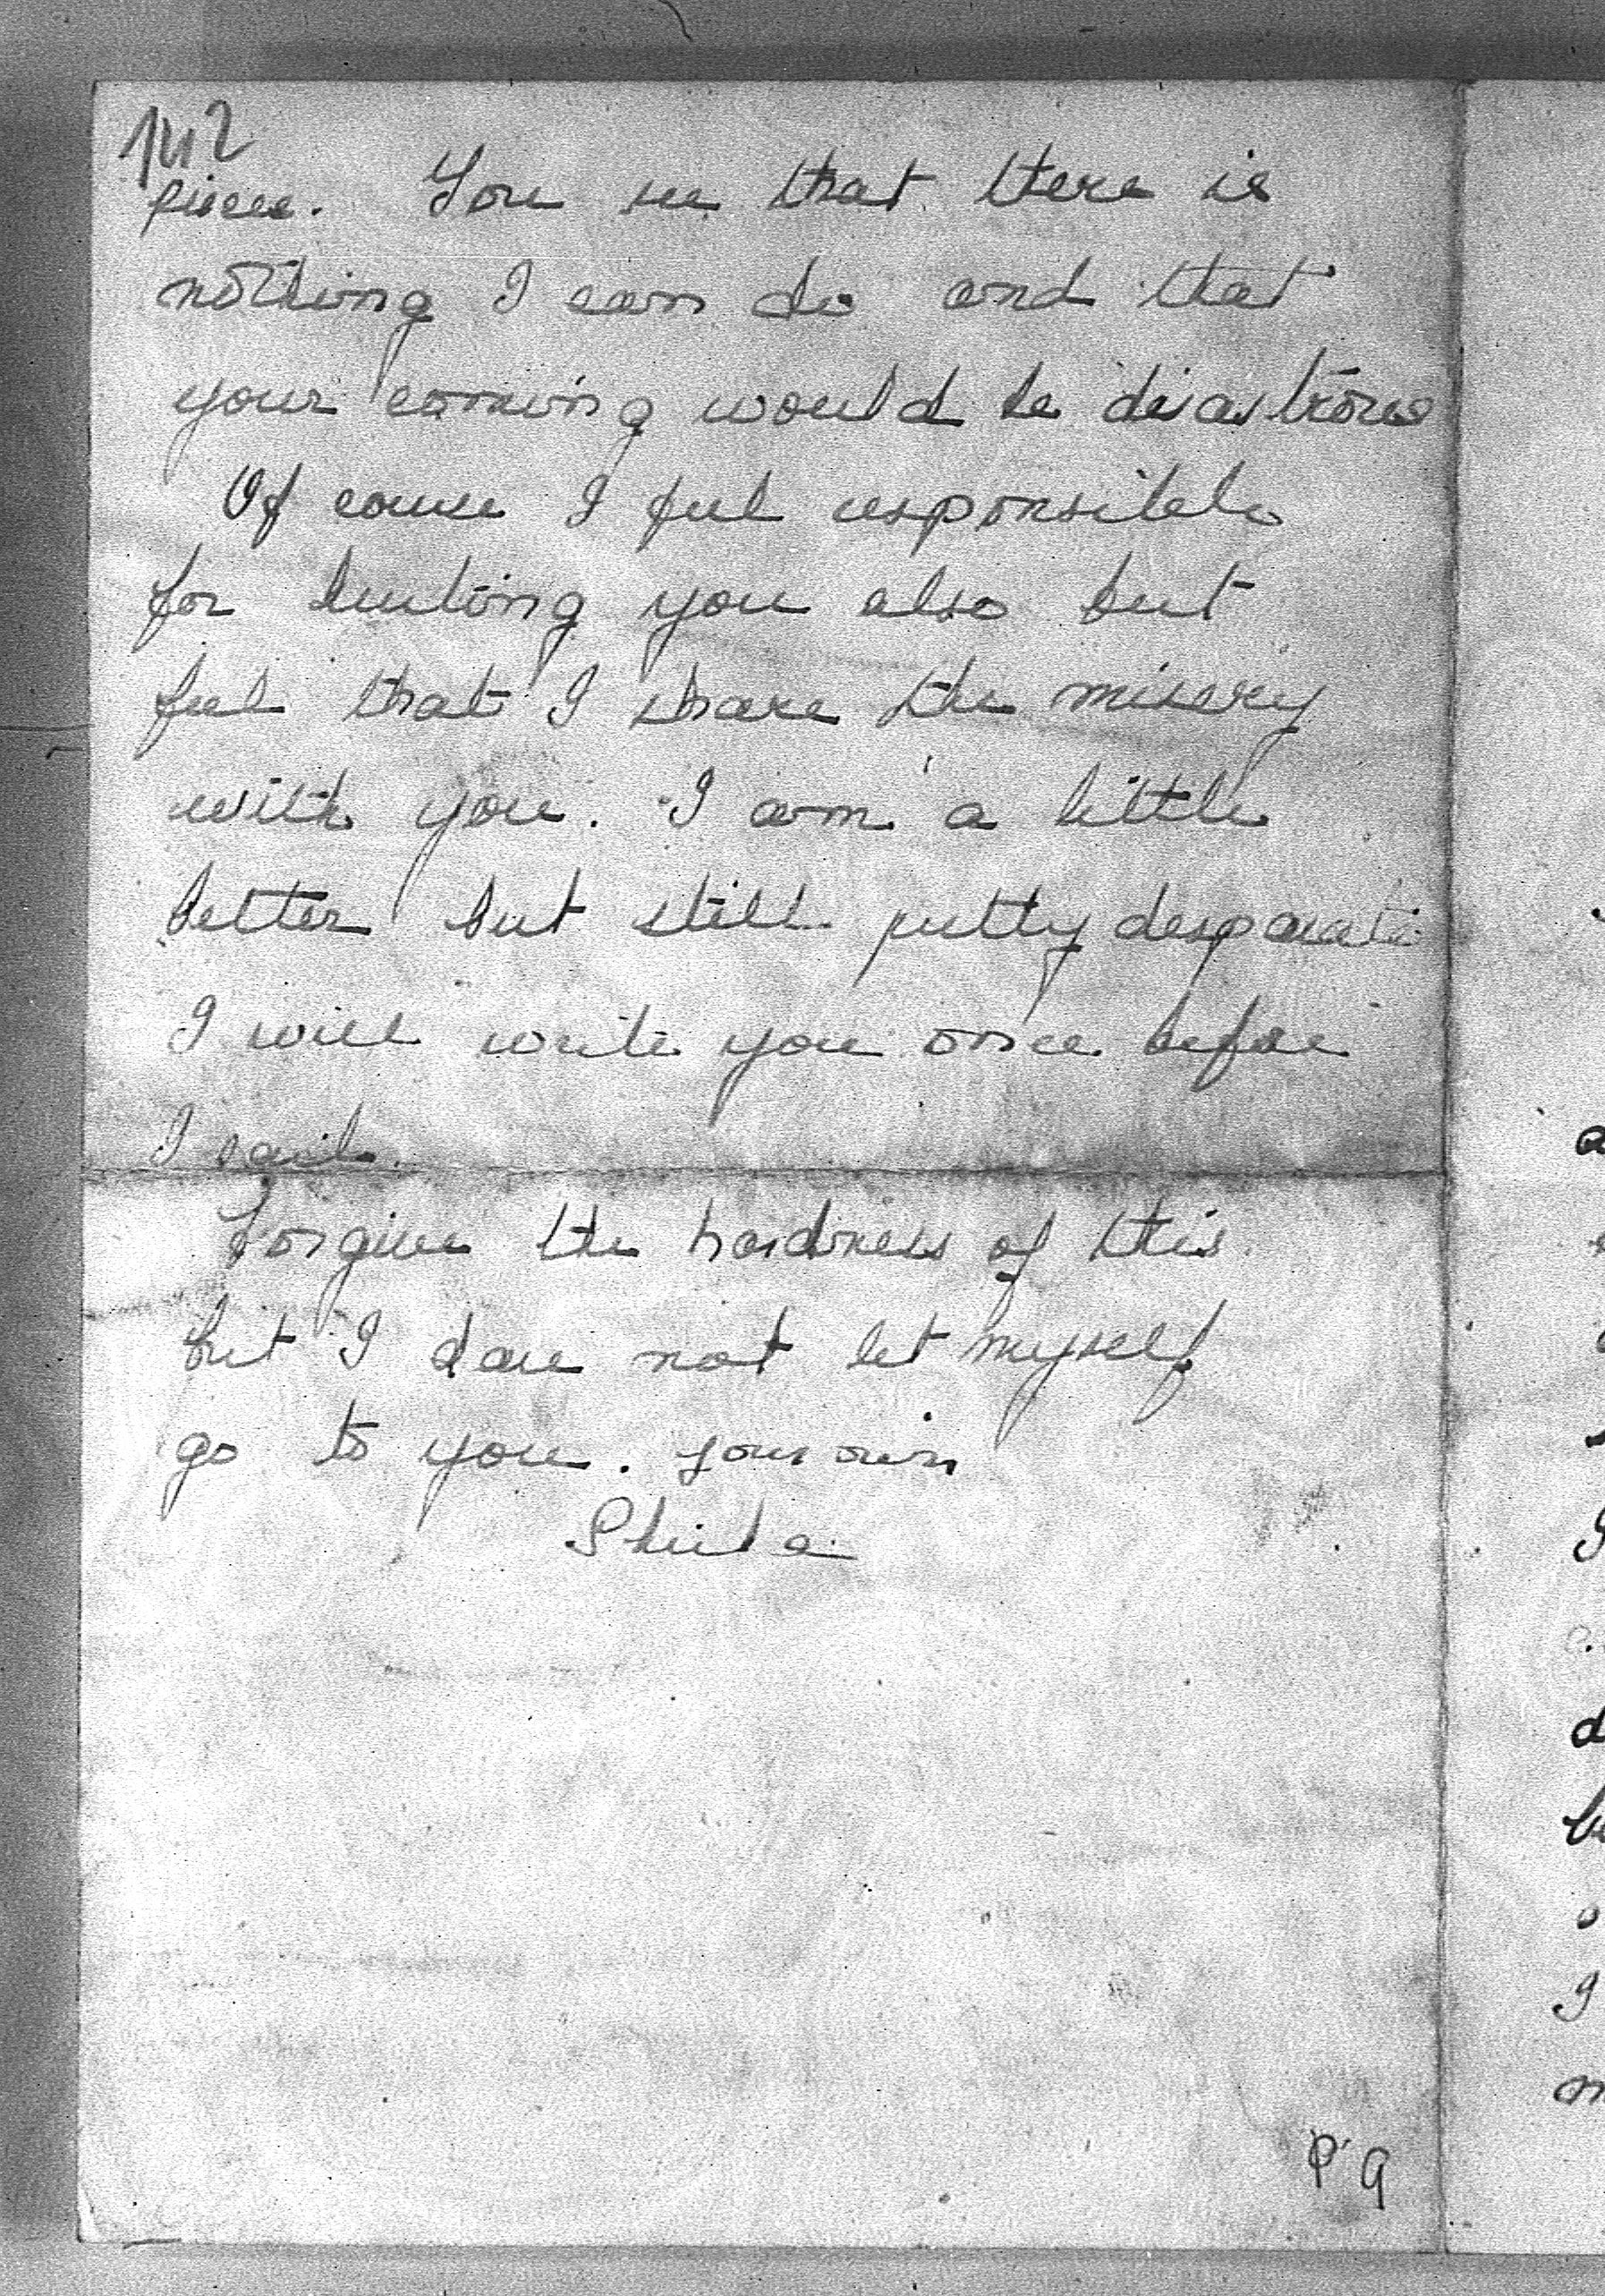 142
pieces. You see that there is
nothing I can do and that
your coming would be disastrous
Of course I feel responsible
for hurting you also but
feel that I share the misery
with you. I am a little
better but still pretty desparate
I will write you once before
I sail.
Forgive the hardness of this
but I dare not let myself
go to you. Your own
Sheila
P 9